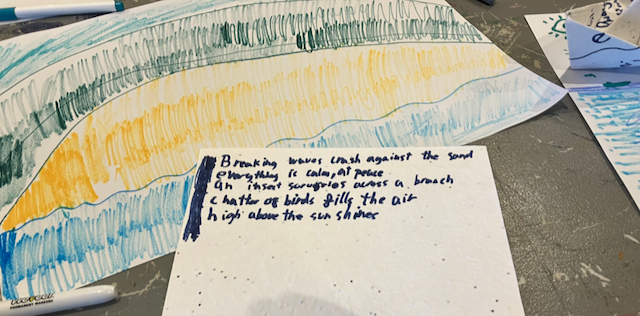 Breaking waves crash against the sand
everything is calm, at peace
an insect scurries across a branch
chatter of birds fills the air
high above the sun shines
PERMANENT MARKERS